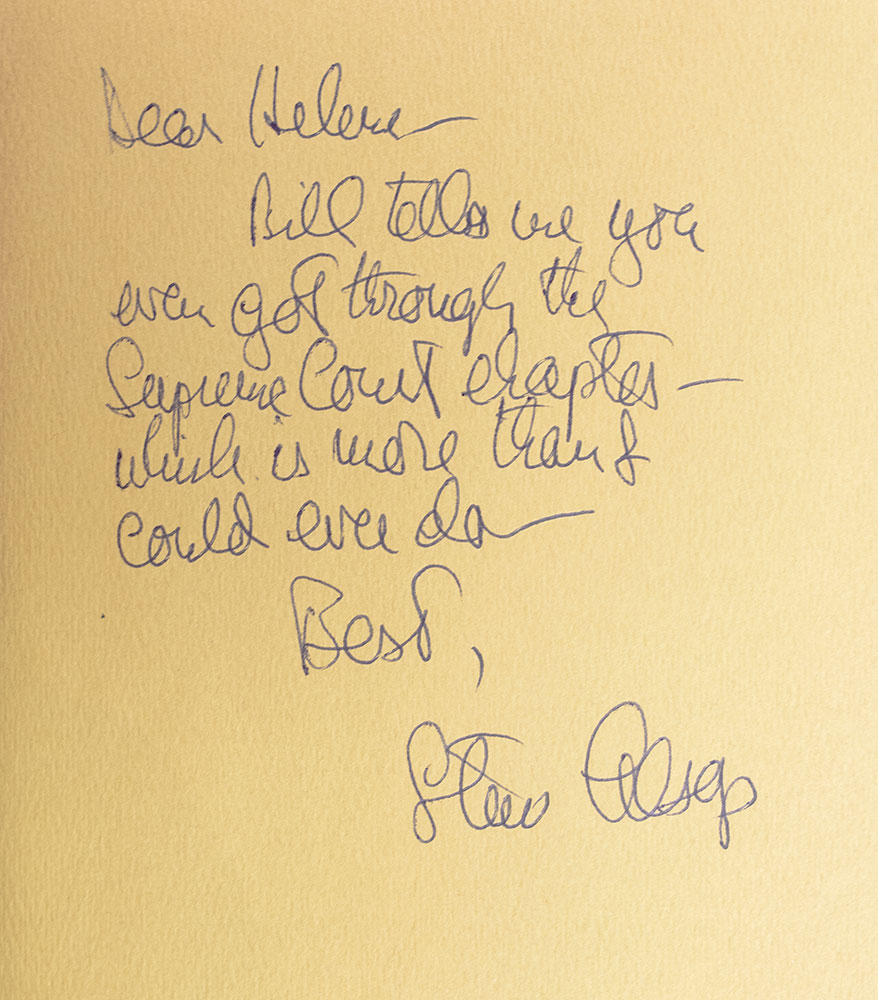 Dear Helene —
Bill tells me you
even got through the
Supreme Court chapter —
which is more than I
could ever do —
Best,
Stew Alsop